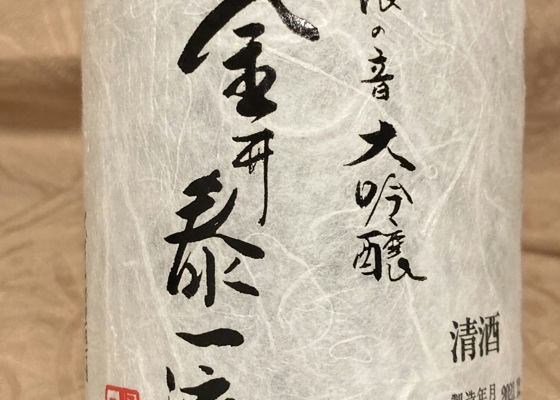 浪の音 大吟醸
金井泰一
清酒
製造年月